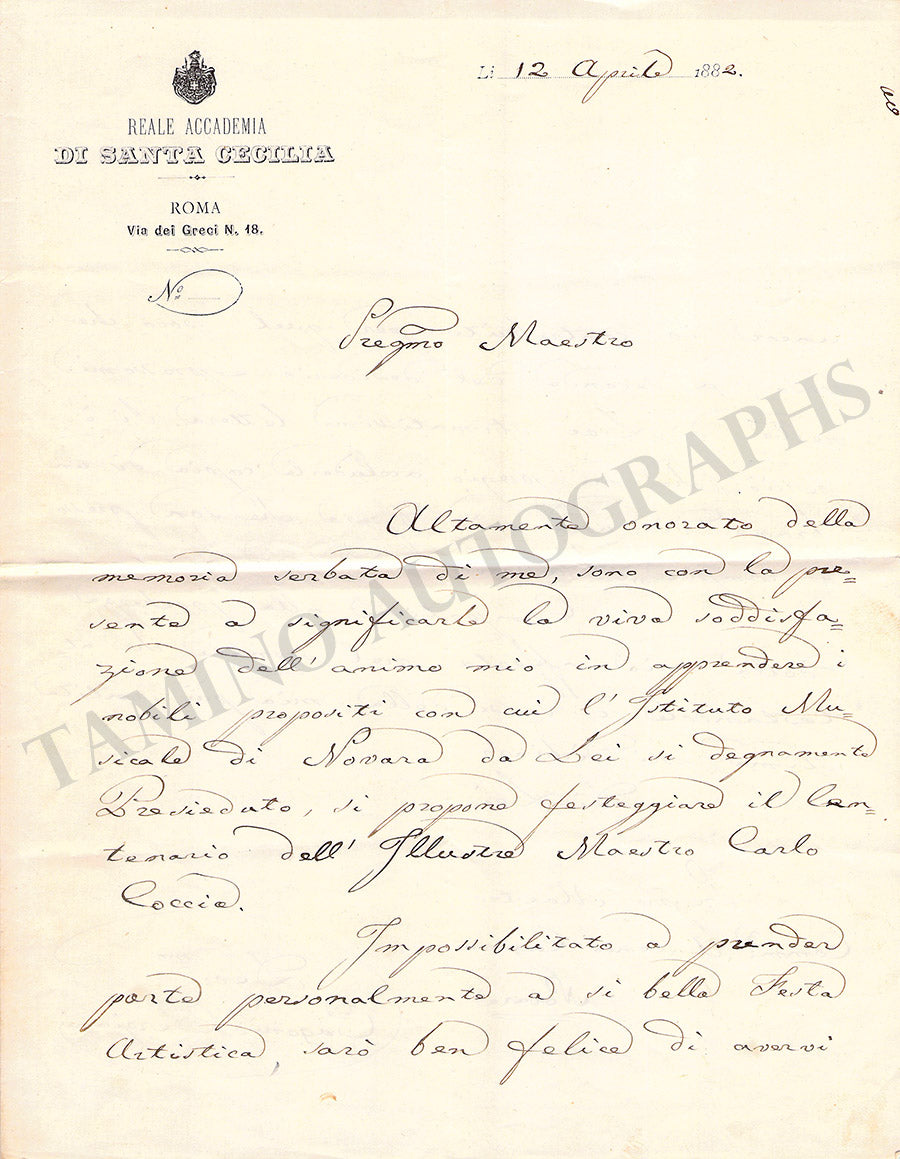 Li 12 Aprile 1882.
REALE ACCADEMIA
DI SANTA CECILIA
ROMA
Via dei Greci N. 18.
Nº
Pregmo Maestro
Altamente onorato della
memoria serbata di me, sono con la pre=
sente a significarle la viva soddisfa=
zione dell'animo mio in apprendere i
nobili propositi con cui l'Istituto Mu=
sicale di Novara da Lei si degnamente
Presieduto, si propone festeggiare il Cen=
tenario dell'Illustre Maestro Carlo
Coccia.
Impossibilitato a prender
parte personalmente a si bella Festa
Artistica, sarò ben felice di avervi
TAMINO AUTOGRAPHS